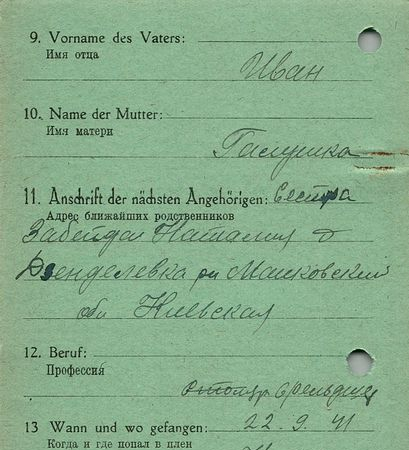 9. Vorname des Vaters:
Имя отца
Иван
10. Name der Mutter:
Имя матери
Галушка
11. Anschrift der nächsten Angehörigen: Сестра
Адрес ближайших родственников
Наталия д
рн Маньковский
обл Киевская
12. Beruf:
Профессия
13 Wann und wo gefangen: 22. 9. 41
Когда и где попал в плен